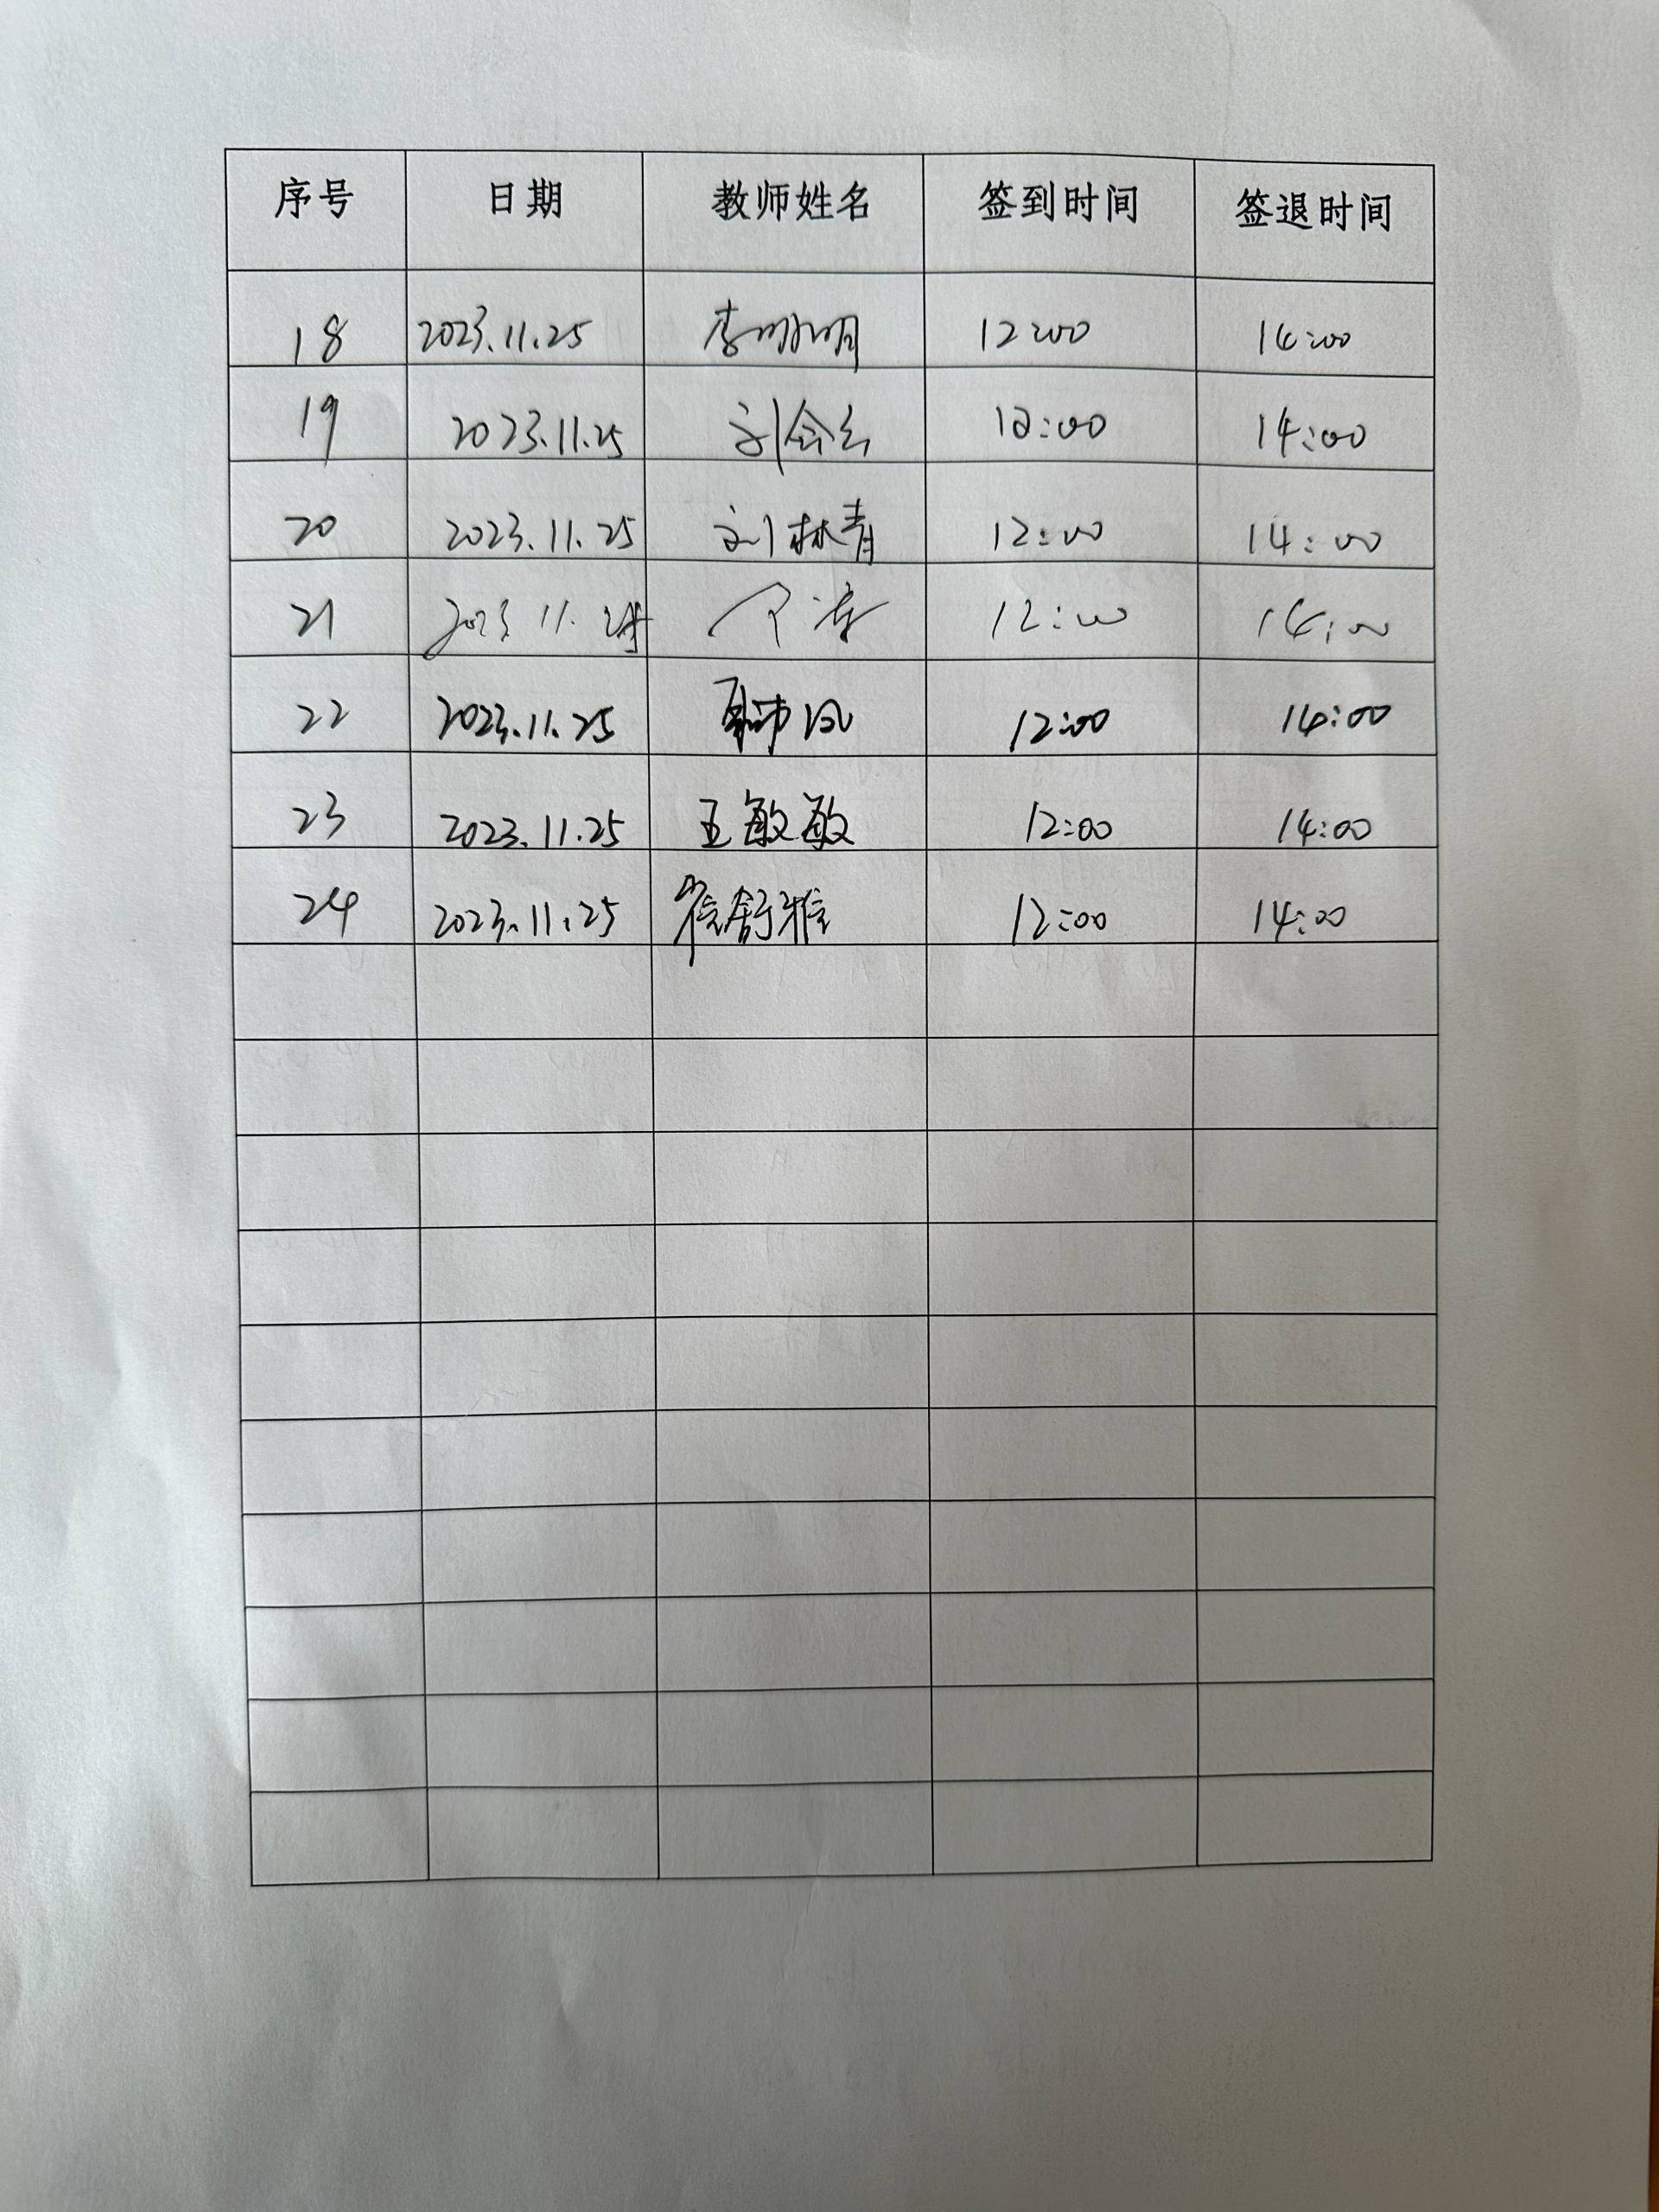 序号 日期 教师姓名 签到时间 签退时间
18 2023.11.25 李明明 12:00 14:00
19 2023.11.25 刘会云 12:00 14:00
20 2023.11.25 刘林青 12:00 14:00
21 2023.11. 12:00 14:00
22 2023.11.25 12:00 14:00
23 2023.11.25 王敏敏 12:00 14:00
24 2023.11.25 崔舒雅 12:00 14:00